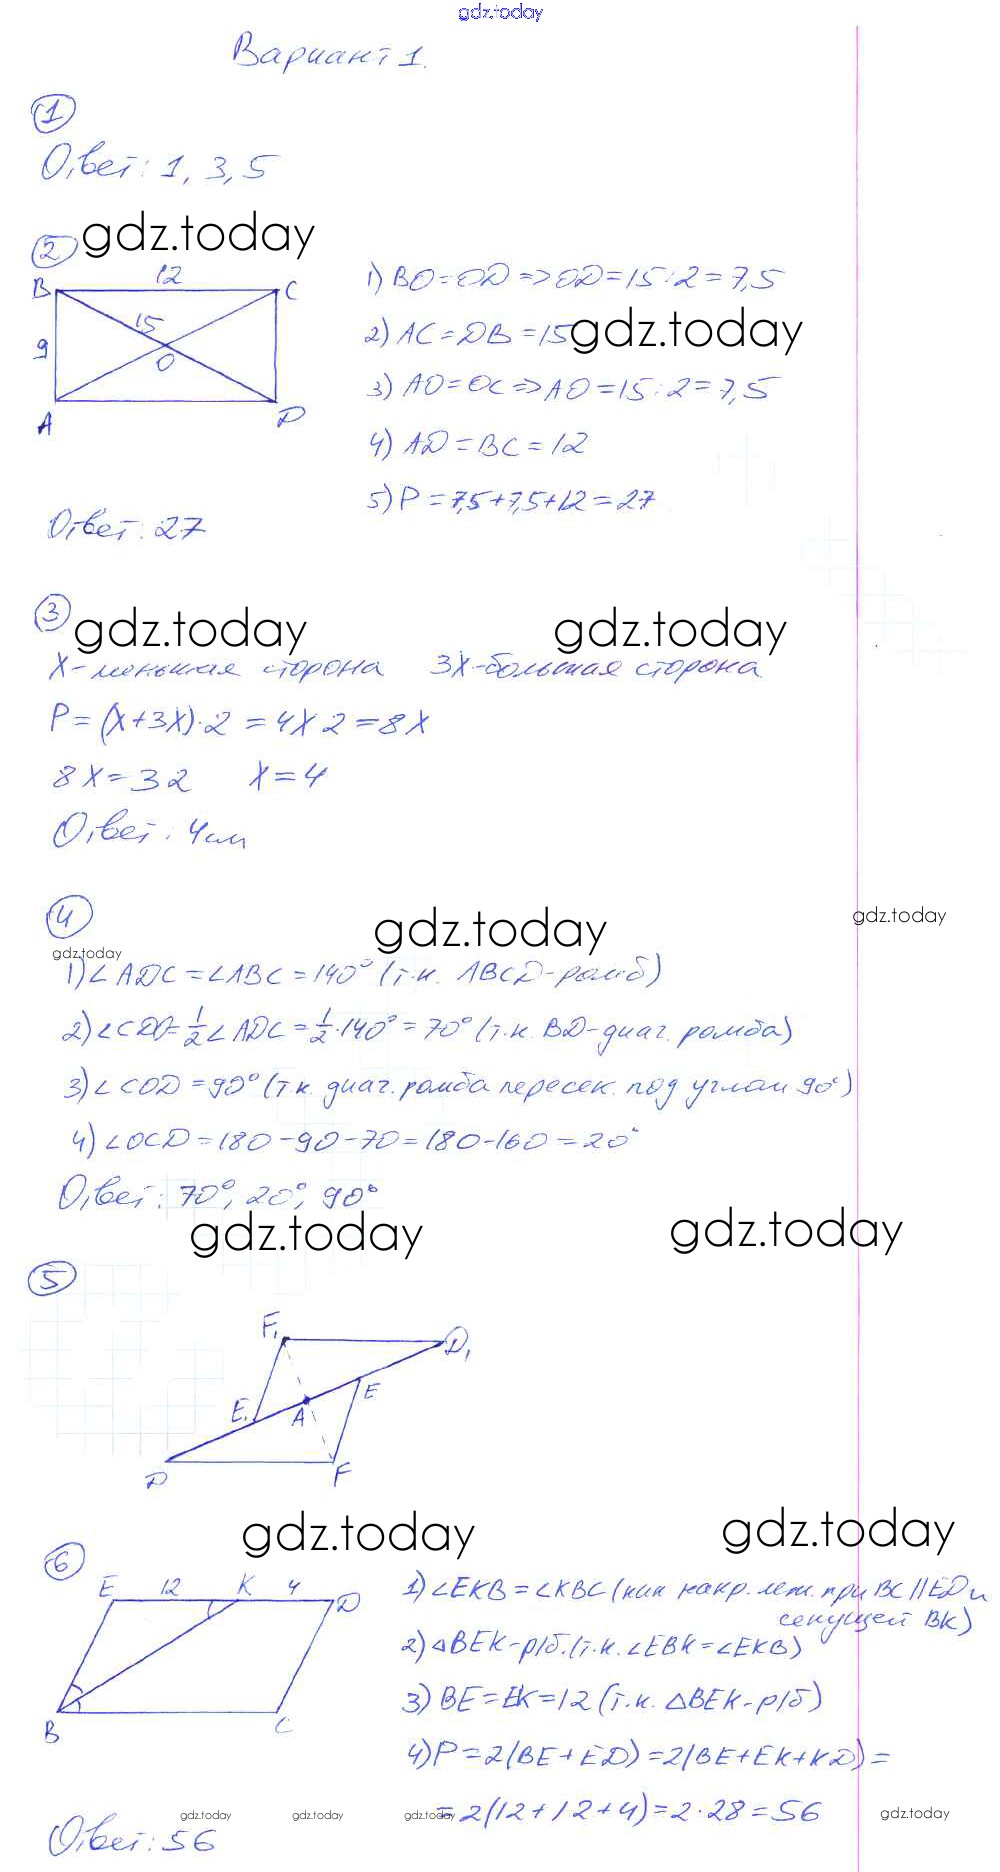 gdz.today
Вариант 1.
1
Ответ: 1, 3, 5
2 gdz.today
B 12 C
9 15 O
A D
1) BO = OD => OD = 15 : 2 = 7,5
2) AC = DB = 15 gdz.today
3) AO = OC => AO = 15 : 2 = 7,5
4) AD = BC = 12
5) P = 7,5 + 7,5 + 12 = 27
Ответ: 27
3 gdz.today gdz.today
X - меньшая сторона 3X - большая сторона
P = (X + 3X) · 2 = 4X 2 = 8X
8X = 32 X = 4
Ответ: 4см
4 gdz.today gdz.today
gdz.today
1) ∠ADC = ∠ABC = 140° (т.к. ABCD - ромб)
2) ∠CDO = 1/2 ∠ADC = 1/2 · 140° = 70° (т.к. BD - диаг. ромба)
3) ∠COD = 90° (т.к. диаг. ромба пересек. под углом 90°)
4) ∠OCD = 180 - 90 - 70 = 180 - 160 = 20°
Ответ: 70°, 20°, 90°
gdz.today gdz.today
5
F₁ D₁
E₁ A E
D F
gdz.today gdz.today
6
E 12 K 4 D
B C
1) ∠EKB = ∠KBC (как накр. леж. при BC || ED и
секущей BK)
2) △BEK - р/б. (т.к. ∠EBK = ∠EKB)
3) BE = EK = 12 (т.к. △BEK - р/б)
4) P = 2(BE + ED) = 2(BE + EK + KD) =
= 2(12 + 12 + 4) = 2 · 28 = 56
gdz.today gdz.today gdz.today gdz.today
Ответ: 56